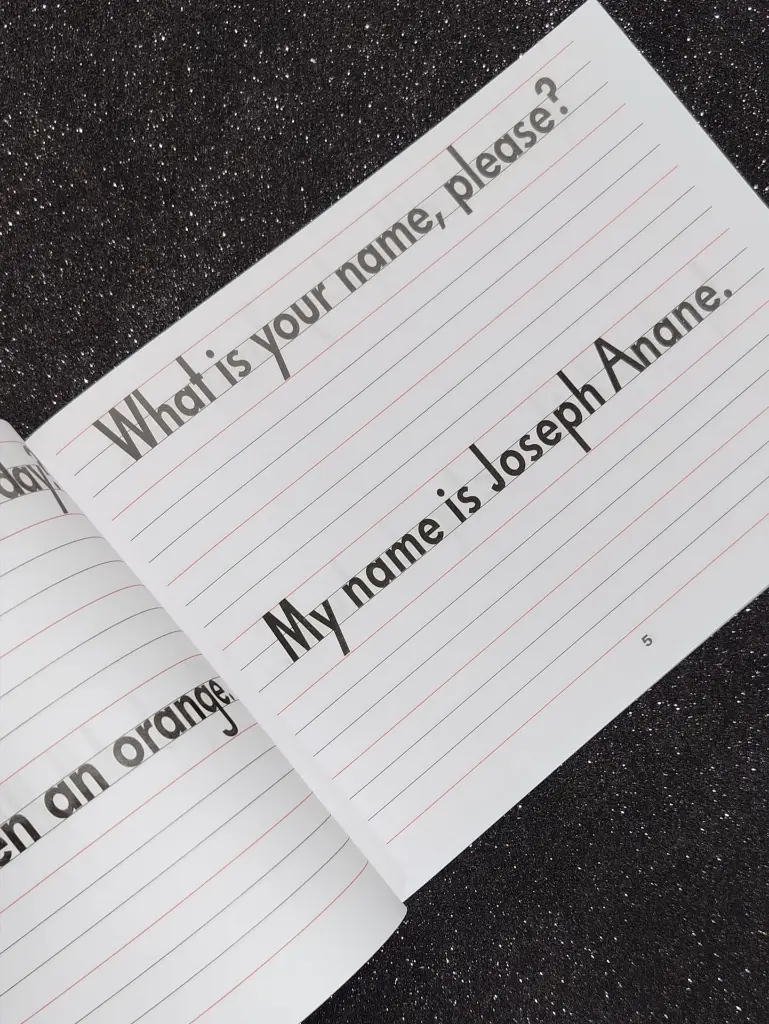 day
en an orange.
What is your name, please?
My name is Joseph Anane.
5